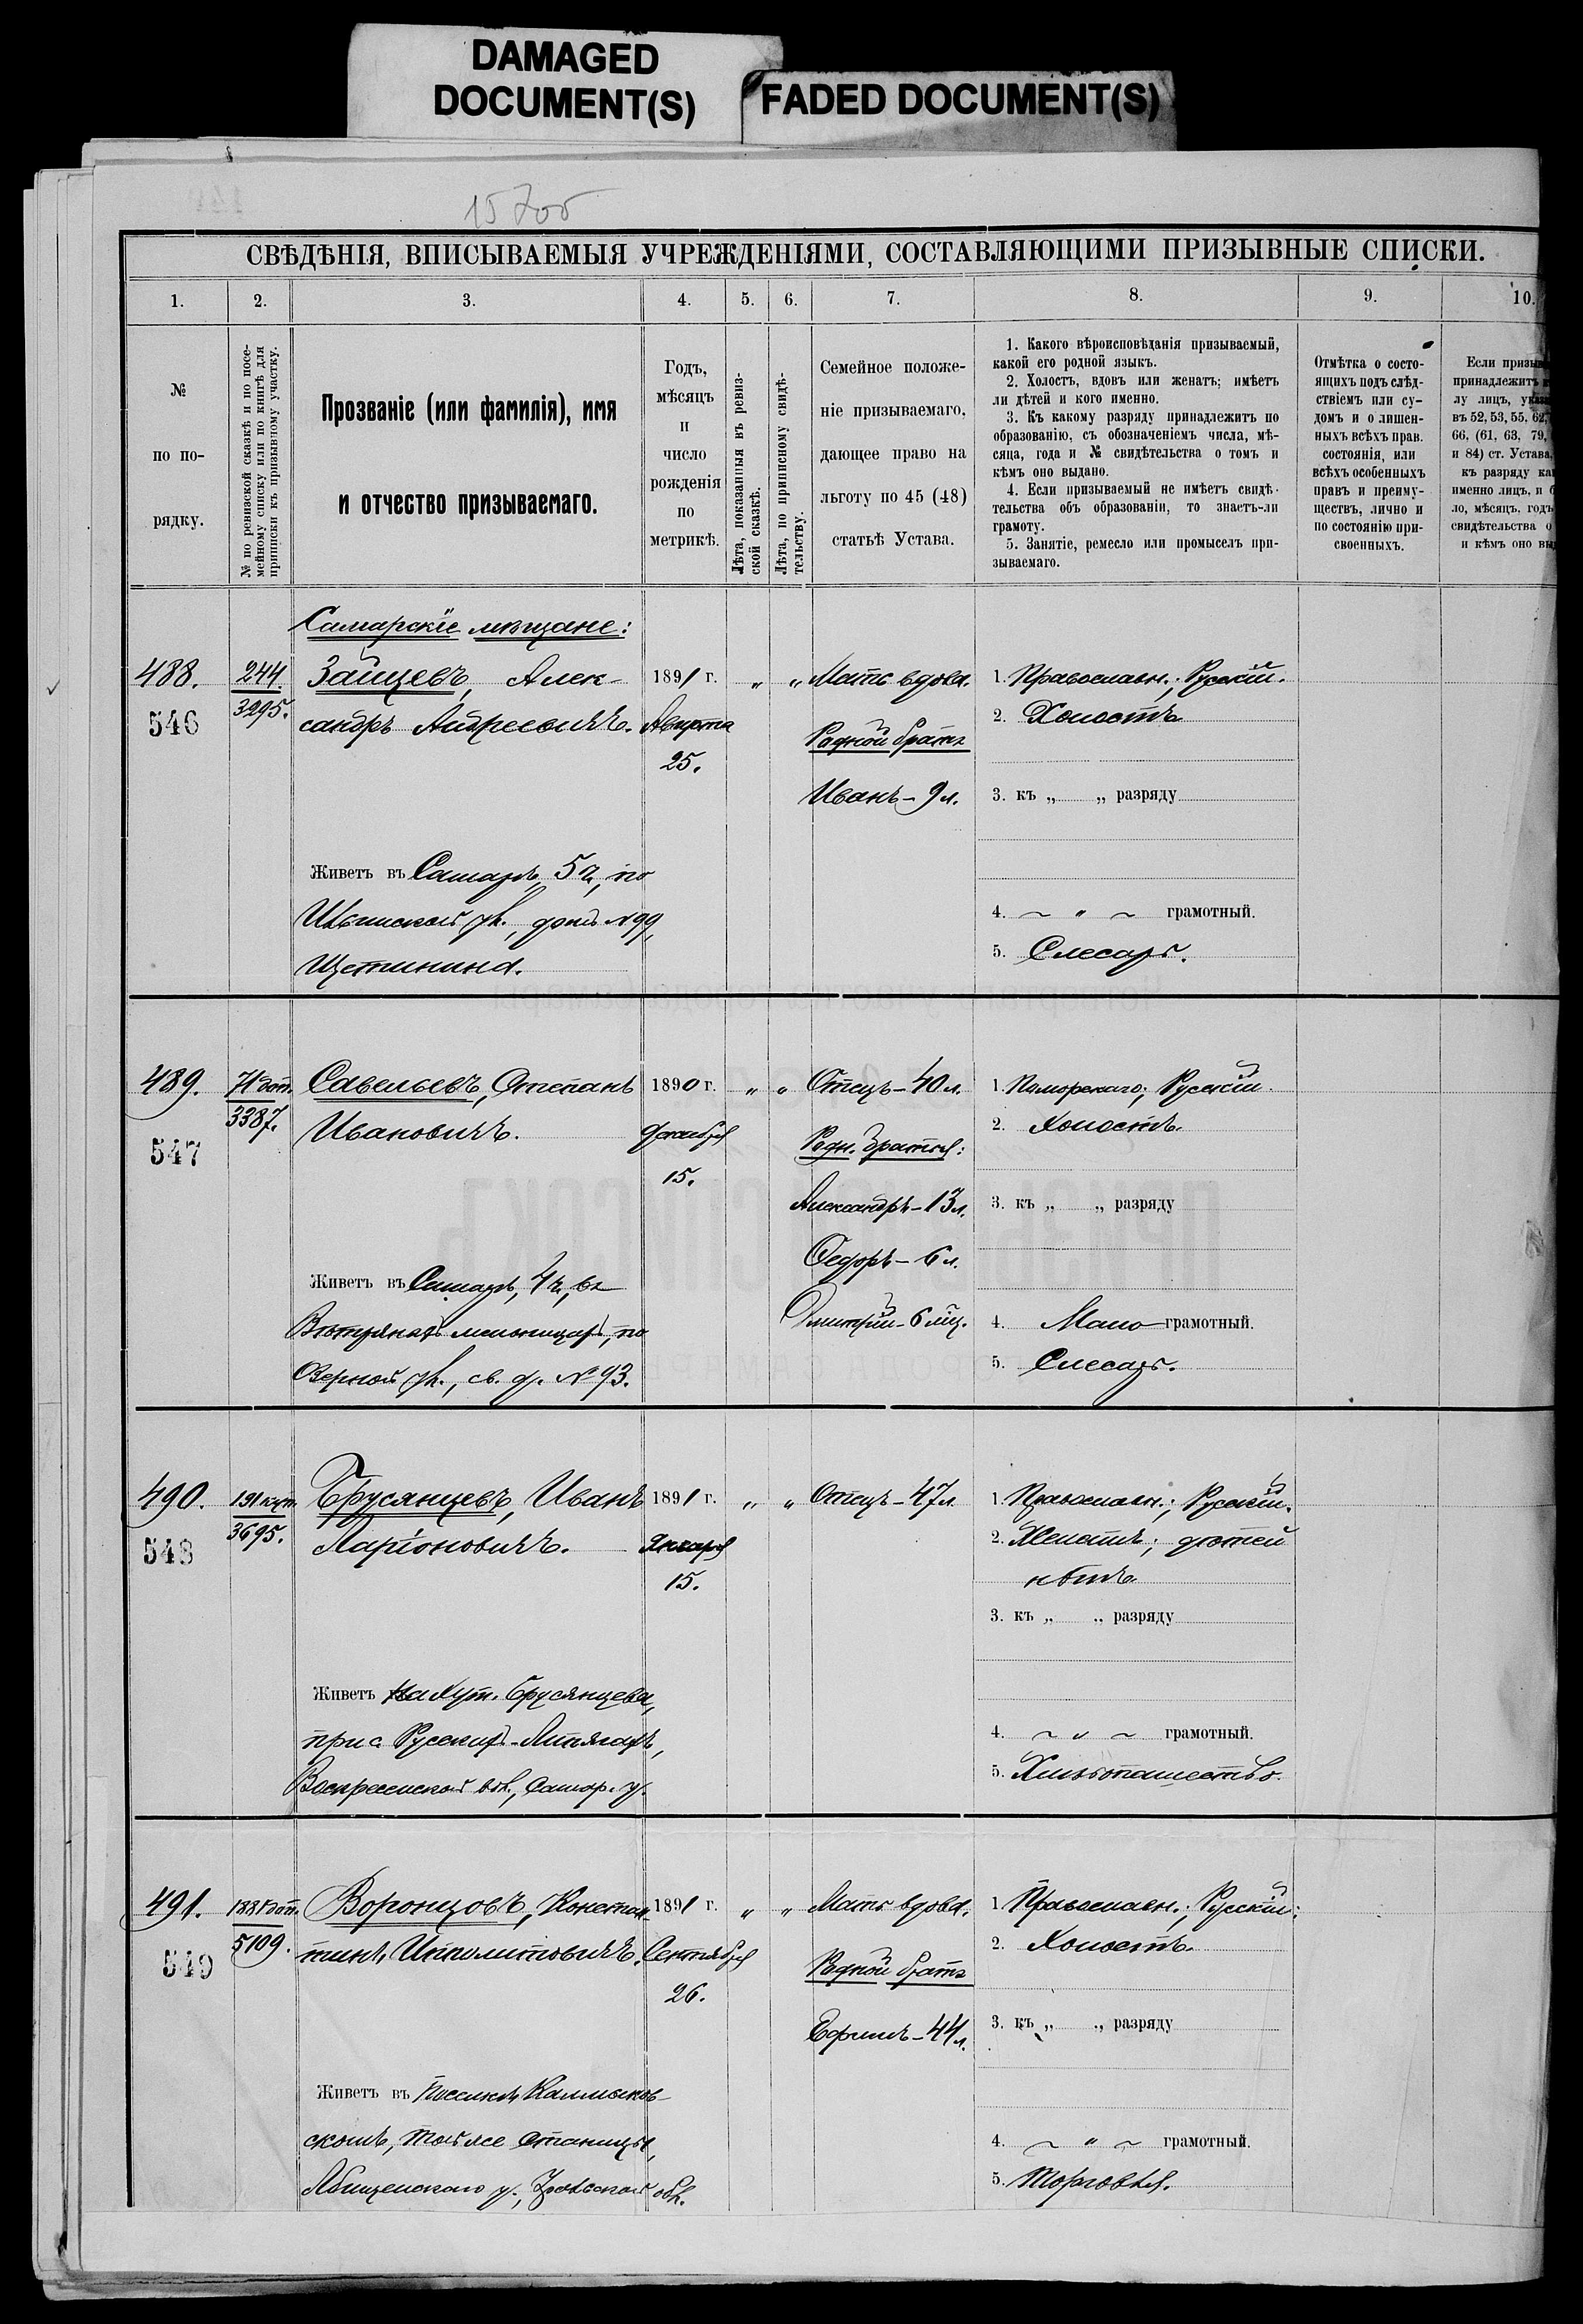 DAMAGED
DOCUMENT(S)
FADED DOCUMENT(S)
СВѢДѢНІЯ, ВПИСЫВАЕМЫЯ УЧРЕЖДЕНІЯМИ, СОСТАВЛЯЮЩИМИ ПРИЗЫВНЫЕ СПИСКИ.
1. 2. 3. 4. 5. 6. 7. 8. 9. 10.
№
по по-
рядку.
№ по ревизской сказкѣ и по посе-
мейному списку или по книгѣ для
приписки къ призывному участку.
Прозваніе (или фамилія), имя
и отчество призываемаго.
Годъ,
мѣсяцъ
и
число
рожденія
по
метрикѣ.
Лѣта, показанныя въ ревиз-
ской сказкѣ.
Лѣта, по приписному свидѣ-
тельству.
Семейное положе-
ніе призываемаго,
дающее право на
льготу по 45 (48)
статьѣ Устава.
1. Какого вѣроисповѣданія призываемый,
какой его родной языкъ.
2. Холостъ, вдовъ или женатъ; имѣетъ
ли дѣтей и кого именно.
3. Къ какому разряду принадлежитъ по
образованію, съ обозначеніемъ числа, мѣ-
сяца, года и № свидѣтельства о томъ и
кѣмъ оно выдано.
4. Если призываемый не имѣетъ свидѣ-
тельства объ образованіи, то знаетъ-ли
грамоту.
5. Занятіе, ремесло или промыселъ при-
зываемаго.
Отмѣтка о состо-
ящихъ подъ слѣд-
ствіемъ или су-
домъ и о лишен-
ныхъ всѣхъ прав.
состоянія, или
всѣхъ особенныхъ
правъ и преиму-
ществъ, лично и
по состоянію при-
своенныхъ.
Если призы
принадлежитъ
лу лицъ,
въ 52, 53, 55, 62,
66, (61, 63, 79,
и 84) ст. Устава,
къ разряду
именно лицъ, и
ло, мѣсяцъ, годъ
свидѣтельства о
и кѣмъ оно
Самарскіе мѣщане:
488.
546
244.
3295.
Зайцевъ, Алек-
сандръ Андреевичъ.
Живетъ въ Самарѣ, 5 ч, по
Ильинской ул., домъ № 99,
Щетинина.
1891 г.
Августа
25.
„ „
Мать вдова.
Родной братъ
Иванъ - 9 л.
1. Православн.; Русскій.
2. Холостъ
3. къ „ „ разряду
4. ~ „ ~ грамотный.
5. Слесарь.
489.
547
71 доп.
3387.
Савельевъ, Степанъ
Ивановичъ.
Живетъ въ Самарѣ, 4 ч, въ
Вѣтряныхъ мельницахъ, по
Озерной ул., св. д. № 93.
1890 г.
Декабря
15.
„ „
Отецъ - 40 л.
Родн. братья:
Александръ - 13 л.
Федоръ - 6 л.
Дмитрій - 6 мѣс.
1. Поморскаго; Русскій.
2. Холостъ.
3. къ „ „ разряду
4. Мало грамотный.
5. Слесарь.
490.
548
3695.
Брусянцевъ, Иванъ
Ларіоновичъ.
Живетъ на хут. Брусянцева,
при с. Русскихъ-Липягахъ,
Воскресенской вол., Самар. у.
1891 г.
Января
15.
„ „
Отецъ - 47 л.
1. Православн.; Русскій.
2. Женатъ; дѣтей
нѣтъ.
3. къ „ „ разряду
4. ~ „ ~ грамотный.
5. Хлѣбопашество.
491.
549
5109.
Воронцовъ, Констан-
тинъ Ипполитовичъ.
Живетъ въ Поселкѣ Калмыков-
скомъ, той же станицы,
Лбищенскаго у., Уральской обл.
1891 г.
Сентября
26.
„ „
Мать вдова.
Родной братъ
Ефимъ - 44 л.
1. Православн.; Русскій.
2. Холостъ.
3. къ „ „ разряду
4. ~ „ ~ грамотный.
5. Торговля.